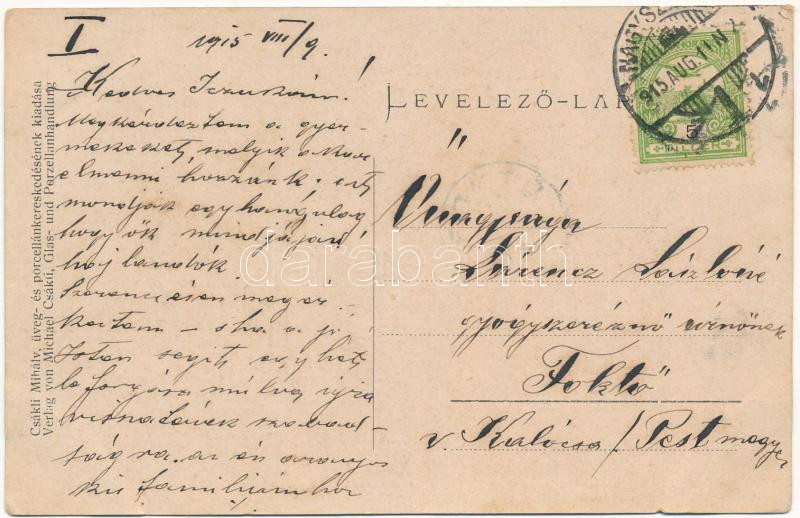 I
1915 VIII/9.
Kedves Iczukám!
Megkérdeztem a gyer-
mekeket, melyik akar
elmenni hozzánk: ezt
mondják egyhangúlag
hogy ők mind
hajlandók.
Szerencsésen megér-
keztem – s ha a jó
Isten segit, egy hét
le forgása múlva ujra
szabad-
ságra. az én aranyos
kis familiámhoz
Csákli Mihály, üveg- és porcellánkereskedésének kiadása
Verlag von Michael Csákli, Glas- und Porzellanhandlung
LEVELEZŐ-LAP
NAGYSZ
915 AUG. 11 N
5
FILLÉR
Őnagysága
Lőrencz Lászlóné
gyógyszerésznő úrnőnek
Foktő
v. Kalocsa / Pest megye
darabanth